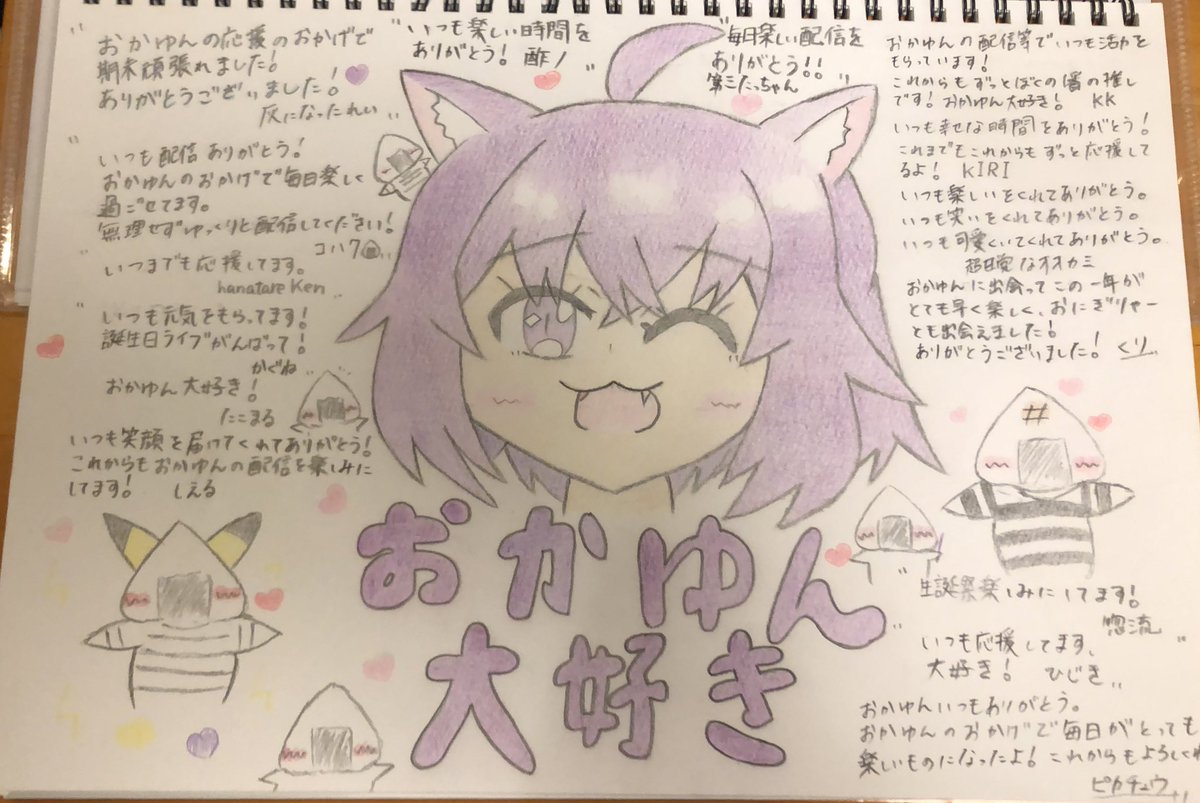 "おかゆんの応援のおかげで
期末頑張れました!
ありがとうございました!
灰になったれい"
"いつも配信ありがとう!
おかゆんのおかげで毎日楽しく
過ごせてます。
無理せずゆっくりと配信してください!
コハク"
"いつまでも応援してます。
hanatare Ken"
"いつも元気をもらってます!
誕生日ライブがんばって!
かぐね
おかゆん大好き!
たこまる
いつも笑顔を届けてくれてありがとう!
これからもおかゆんの配信を楽しみに
してます! しえる
"いつも楽しい時間を
ありがとう! 酢ノ"
"毎日楽しい配信を
ありがとう!!
第三たっちゃん"
おかゆんの配信等でいつも活力を
もらっています!
これからもずっとぼくの一番の推し
です!おかゆん大好き! KK
いつも幸せな時間をありがとう!
これまでもこれからもずっと応援して
るよ! KIRI
いつも楽しいをくれてありがとう。
いつも笑いをくれてありがとう。
いつも可愛くいてくれてありがとう。
超目覚なオオカミ
おかゆんに出会ってこの一年が
とても早く楽しく、おにぎりゃー
とも出会えました!
ありがとうございました! くり
おかゆん
大好き
"生誕祭楽しみにしてます!
惣流"
"いつも応援してます、
大好き! ひじき"
おかゆんいつもありがとう。
おかゆんのおかげで毎日がとっても
楽しいものになったよ!これからもよろしくね
ピカチュウ